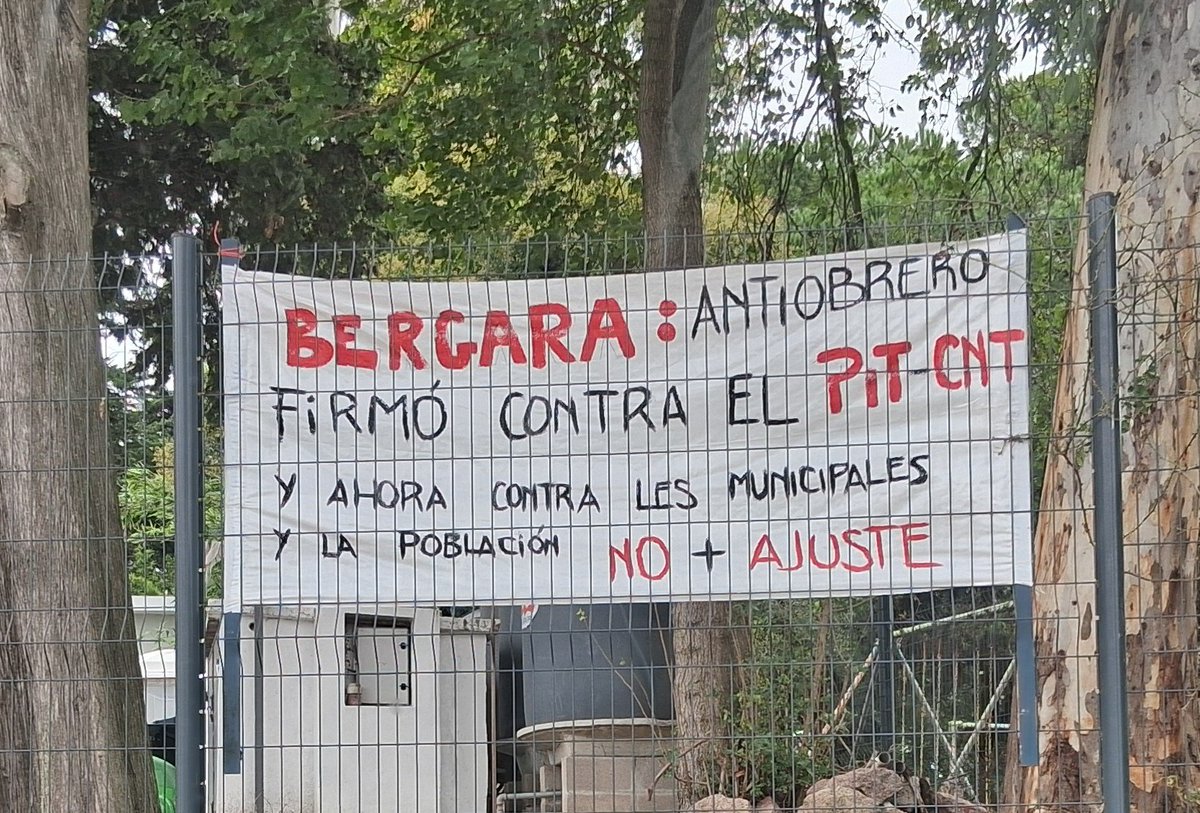 BERGARA: ANTIOBRERO
FiRMÓ CONTRA EL PiT-CNT
Y AHORA CONTRA LES MUNICIPALES
Y LA POBLACIÓN NO + AJUSTE